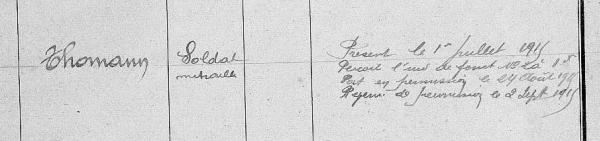 Thomann
Soldat
mitrailleur
Présent le 1er Juillet 1915
Perçoit l'ind de fonct N° 2 à 1 s
Part en permission le 24 Août 1915
Rejoint de permission le 2 Sept 1915